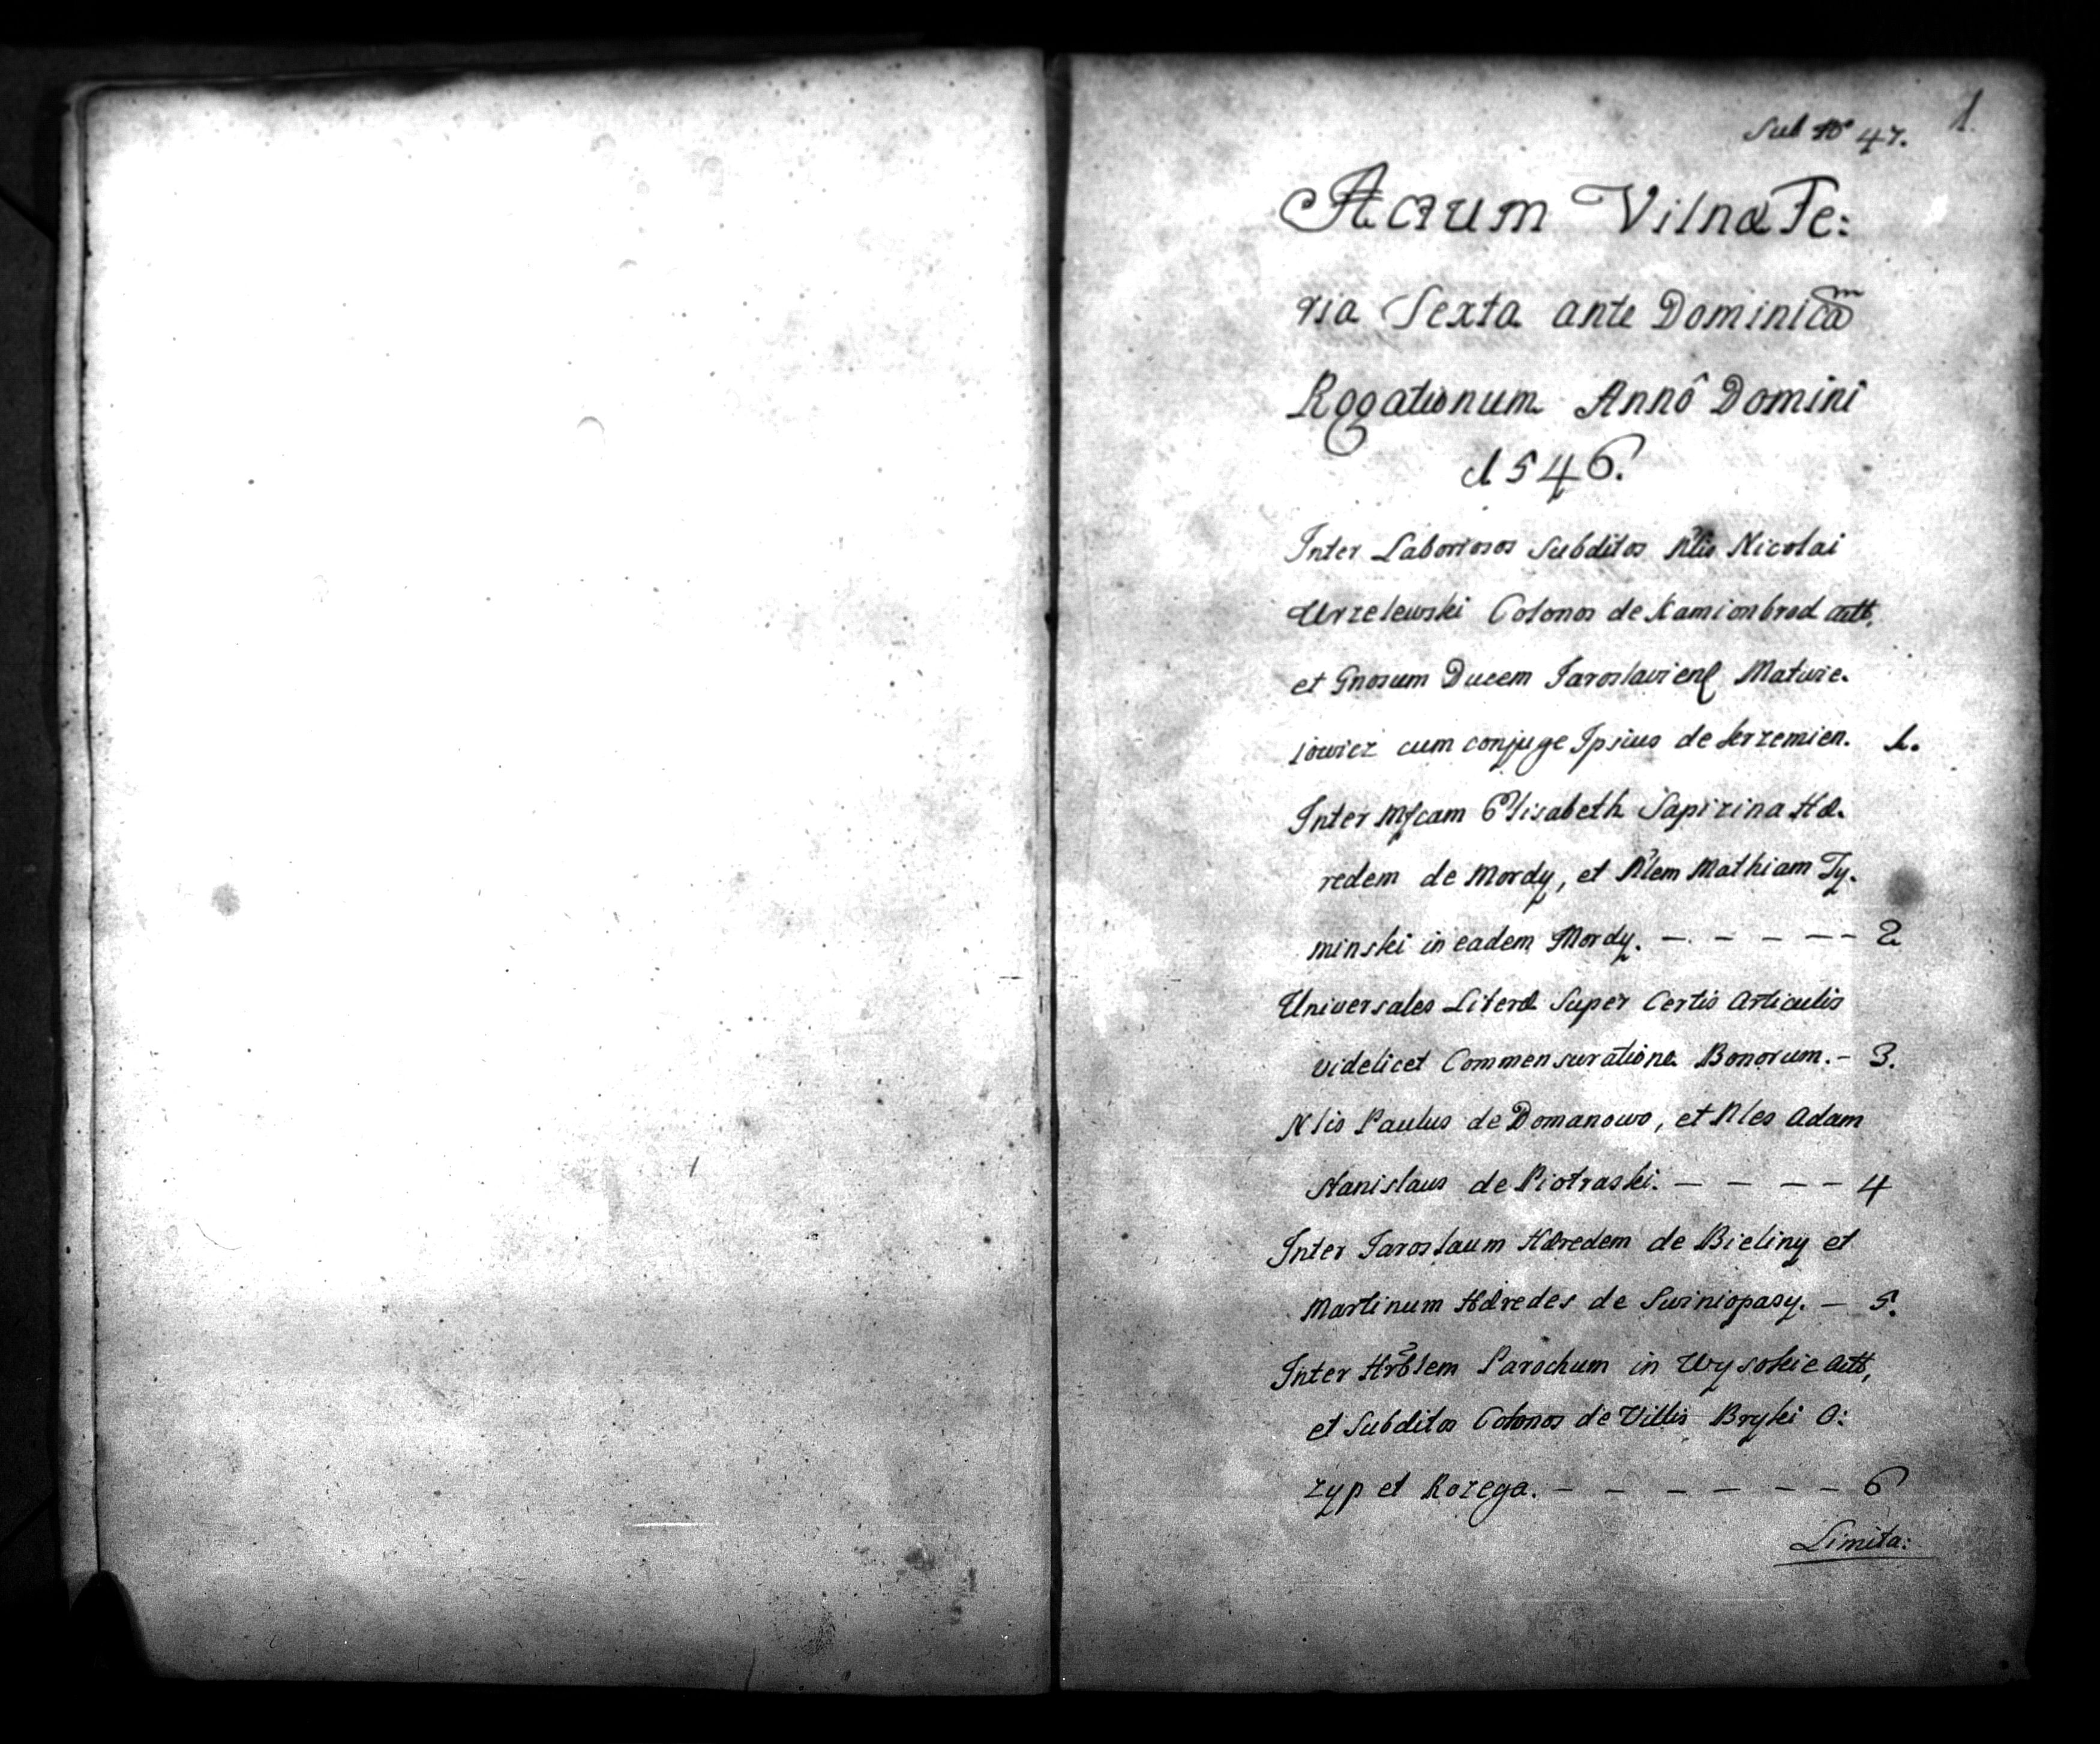 1.
Sub No 47.
Actum Vilnæ Fe:
ria Sexta ante Dominicam
Rogationum Annô Domini
1546.
Inter Laboriosos Subditos Nlis Nicolai
Urzelewski Colonos de Kamionbrod actt,
et Gnosum Ducem Jaroslavien Matwie-
iowicz cum conjuge Ipsius de Jerzemien. 1.
Inter Mfcam Elisabeth Sapizina Hæ-
redem de Mordy, et Nlem Mathiam Ty-
minski in eadem Mordy. — - — — - 2
Universales Literæ Super Certis Articulis
videlicet Commensuratione Bonorum. - 3.
Nlis Paulus de Domanowo, et Nles Adam
Stanislaus de Piotraski. — — — - 4
Inter Jaroslaum Hæredem de Bieliny et
Martinum Hæredes de Swiniopasy. — 5.
Inter Hrblem Parochum in Wysokie actt,
et Subditos Colonos de Villis Bryki O:
zyp et Rozega. - - - - - - 6
Limita: